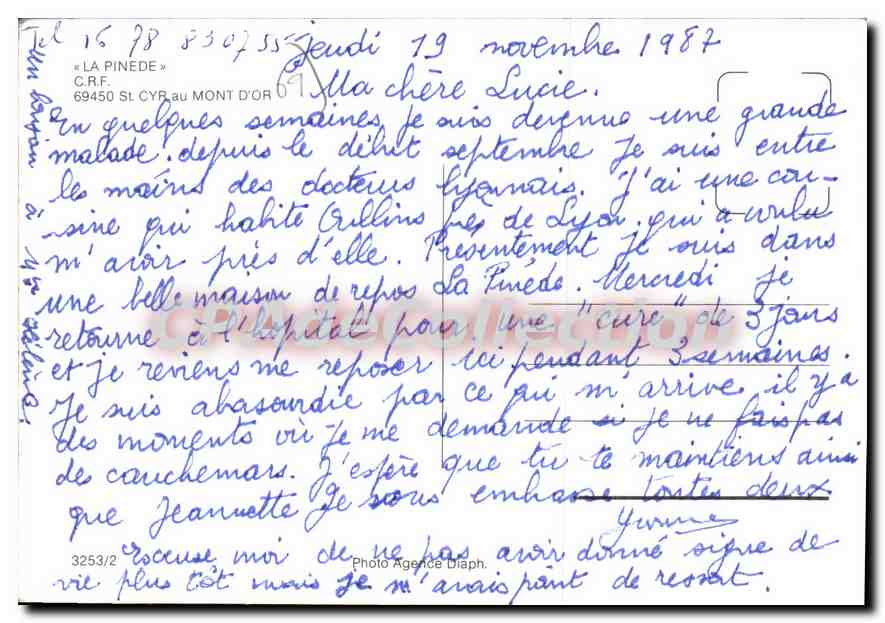 Tel 16 78 830755
jeudi 19 novembre 1987
« LA PINEDE »
C.R.F.
69450 St. CYR au MONT D'OR
69
Ma chère Lucie.
En quelques semaines, je suis devenue une grande
malade. depuis le début septembre je suis entre
les mains des docteurs lyonnais. J'ai une cou-
sine qui habite Oullins près de Lyon. qui a voulu
m'avoir près d'elle. Présentement je suis dans
une belle maison de repos La Pinède. Mercredi je
retourne à l'hopital pour une "cure" de 3 jours
et je reviens me reposer ici pendant 3 semaines.
Je suis abasourdie par ce qui m'arrive. il y a
des moments où je me demande si je ne fais pas
de cauchemars. J'espère que tu te maintiens ainsi
que Jeannette Je vous embrasse toutes deux
Yvonne
3253/2
Photo Agence Diaph.
Excuse moi de ne pas avoir donné signe de
vie plus tôt mais je n'avais point de ressort.
Un à
CPADeCollection